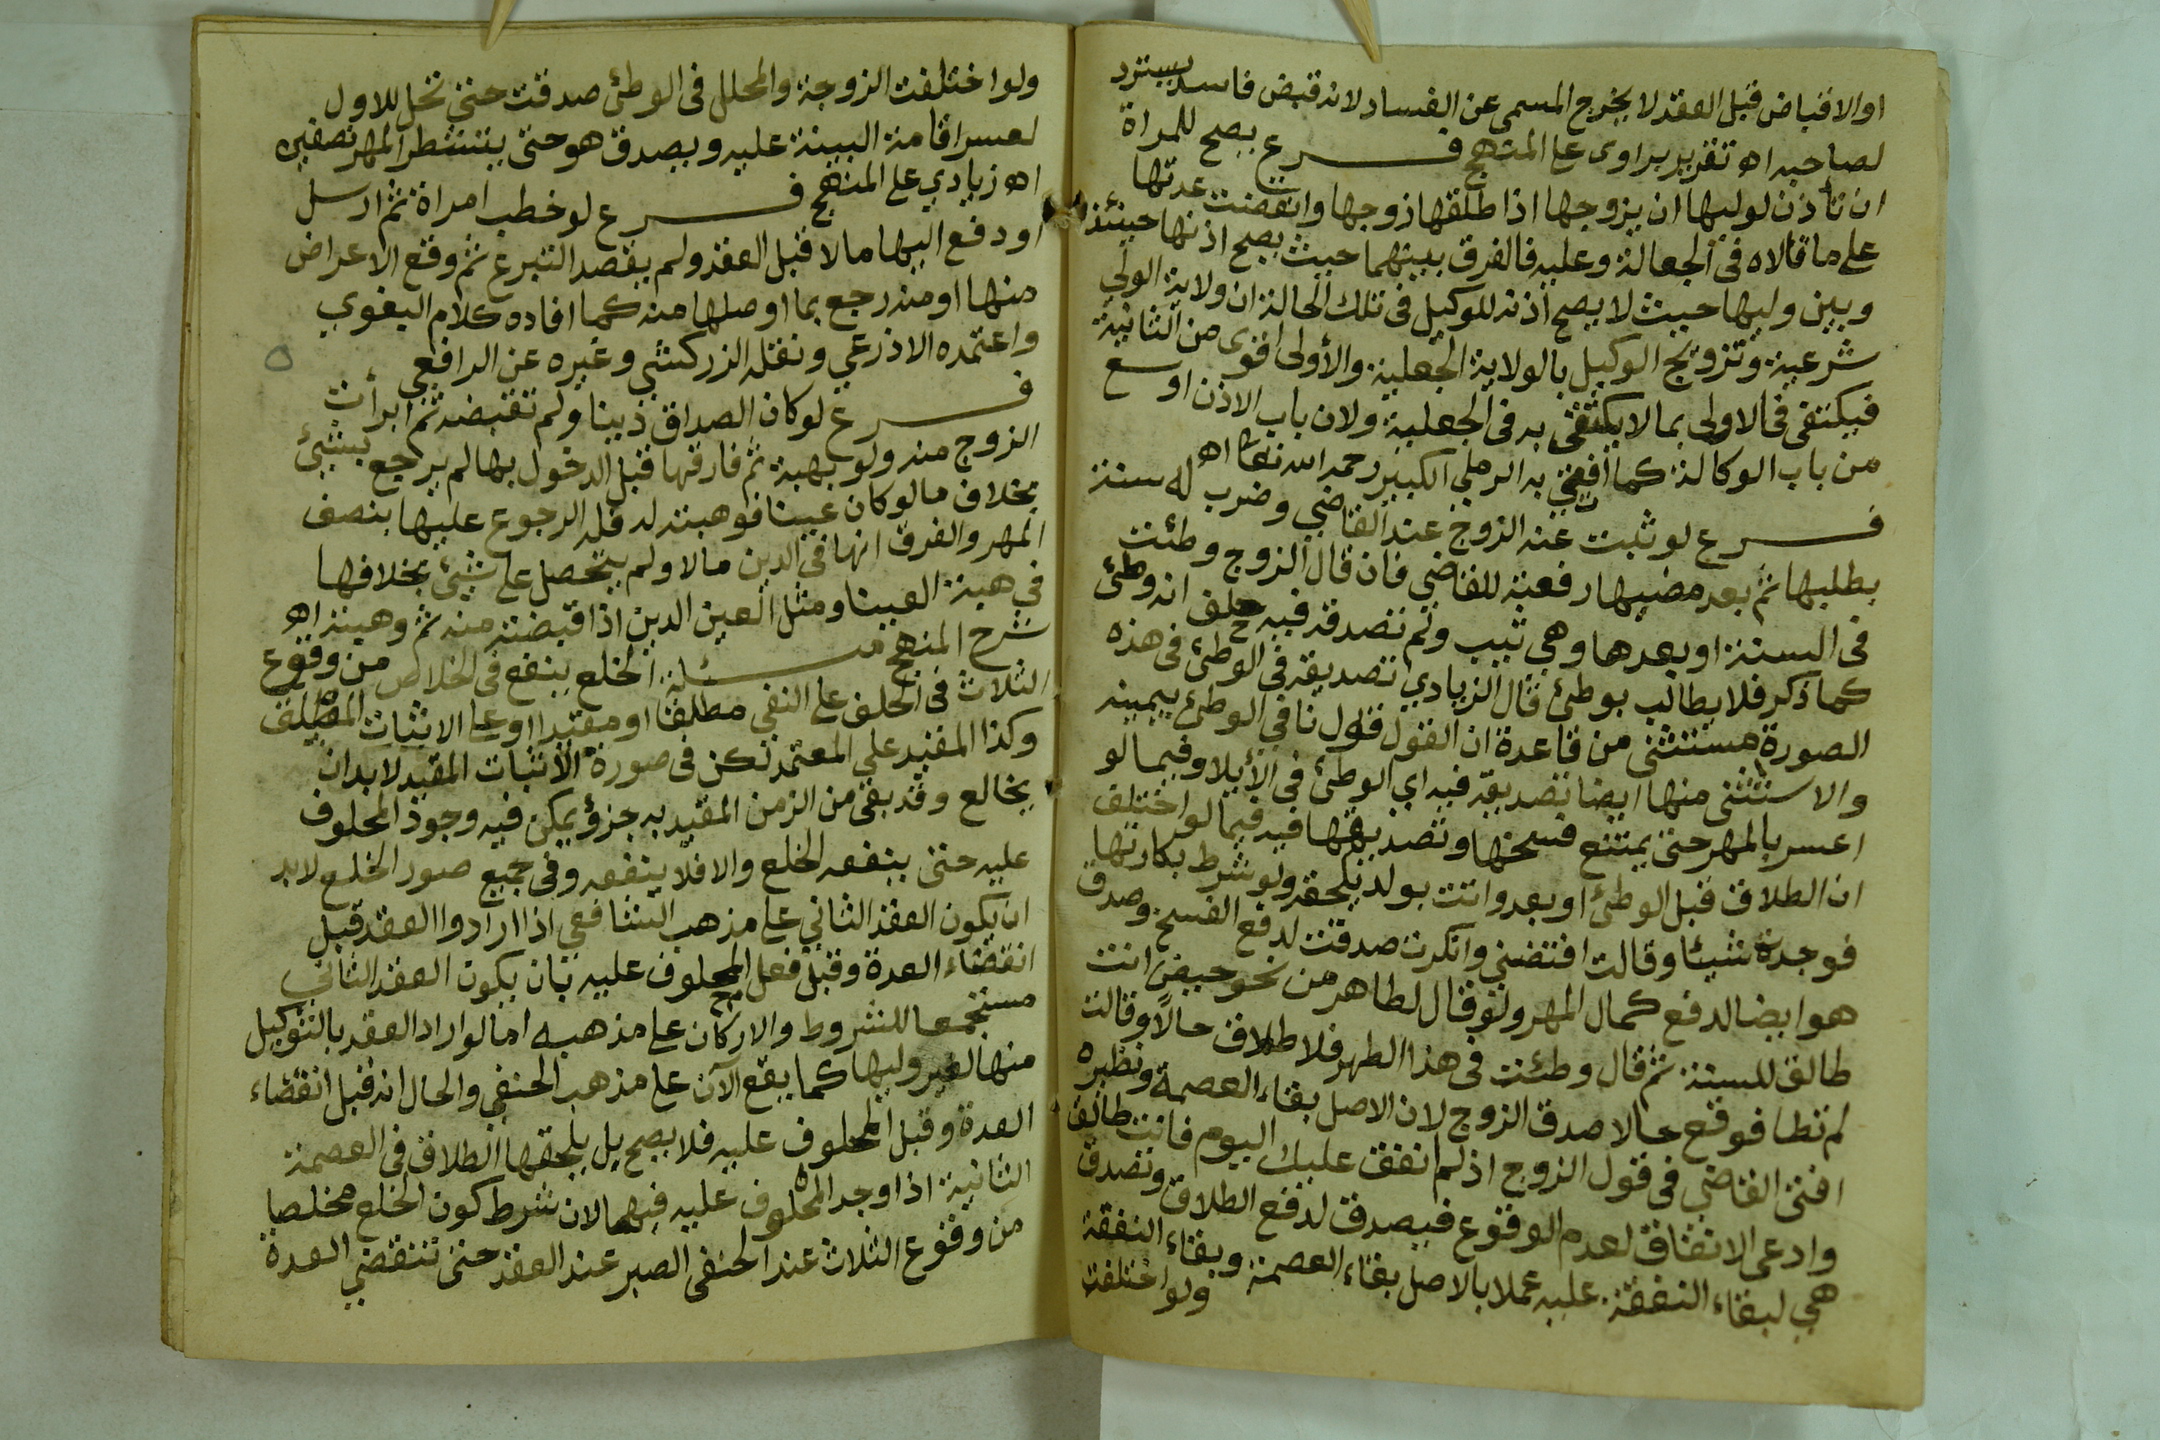 او الاقباض قبل العقد لا يخرج المسمى عن الفساد لانه قبض فاسد يسترد
لصاحبه اه تقرير براوى على المنهج فرع يصح للمراة
ان تأذن لوليها ان يزوجها اذا طلقها زوجها وانقضت عدتها
على ما قالاه فى الجعالة وعليه فالفرق بينهما حيث يصح اذنها حينئذ
وبين وليها حيث لا يصح اذنه للوكيل فى تلك الحالة ان ولاية الولي
شرعية وتزويج الوكيل بالولاية الجعلية والأولى اقوى من الثانية
فيكتفى فى الاولى بما لا يكتفى به فى الجعلية ولان باب الاذن اوسع
من باب الوكالة كما أفتى به الرملي الكبير رحمه الله تعا اه
فرع لو ثبت عنه الزوج عند القاضي وضرب له سنة
بطلبها ثم بعد مضيها رفعته للقاضي فان قال الزوج وطئت
فى السنة او بعدها وهي ثيب ولم تصدقه فيه حلف انه وطئ
كما ذكر فلا يطالب بوطئ قال الزيادي تصديقه فى الوطئ فى هذه
الصورة مستثنى من قاعدة ان القول قول نافي الوطئ بيمينه
والاستثنى منها ايضا تصديقه فيه اي الوطئ في الأيلا وفيما لو
اعسر بالمهر حتى يمتنع فسخها وتصديقها فيه فيما لو اختلف
ان الطلاق قبل الوطئ او بعد واتت بولد يلحقه ولو شرط بكارتها
فوجدة ثيبا وقالت افتضني وانكرت صدقت لدفع الفسخ وصدق
هو ايضا لدفع كمال المهر ولو قال لطاهر من نحو حيض انت
طالق للسنة ثم قال وطئت فى هذا الطهر فلا طلاق حالاً وقالت
لم تطا فوقع حالا صدق الزوج لان الاصل بقاء العصمة ونظيره
افتى القاضي فى قول الزوج اذ لم انفق عليك اليوم فانت طالق
وادعى الانفاق لعدم الوقوع فيصدق لدفع الطلاق وتصدق
هي لبقاء النفقة عليه عملا بالاصل بقاء العصمة وبقاء النفقة
ولو اختلفت
ولو اختلفت الزوجة والمحلل فى الوطئ صدقت حتى تحل للاول
لعسر اقامة البينة عليه ويصدق هو حتى يتشطر المهر نصفين
اه زيادي على المنهج فرع لو خطب امراة ثم ارسل
او دفع اليها مالا قبل العقد ولم يقصد التبرع ثم وقع الاعراض
منها او منه رجع بما اوصلها منه كما افاده كلام البغوي
واعتمده الاذرعي ونقله الزركشي وغيره عن الرافعي
فرع لو كان الصداق دينا ولم تقبضه ثم ابرأت
الزوج منه ولو بهبة ثم فارقها قبل الدخول بها لم يرجع بشئ
بخلاف ما لو كان عينا فوهبته له فله الرجوع عليها بنصف
المهر والفرق انها في الدين مالا ولم يتحصل على شئ بخلافها
في هبة العينا ومثل العين الدين اذا قبضته منه ثم وهبته اه
شرح المنهج مسئلة الخلع ينفع فى الخلاص من وقوع
الثلاث فى الحلف على النفي مطلقا او مقيدا او على الاثبات المطلق
وكذا المقيد على المعتمد لكن فى صورة الأثبات المقيد لا بد ان
يخالع وقد بقى من الزمن المقيد به جزؤ يمكن فيه وجود المحلوف
عليه حتى ينفعه الخلع والا فلا ينفعه وفى جميع صور الخلع لابد
ان يكون العقد الثاني على مذهب الشافعي اذا ارادوا العقد قبل
انقضاء العدة وقبل فعل المحلوف عليه بان يكون العقد الثاني
مستجمعا للشروط والاركان على مذهبه اما لو اراد العقد بالتوكيل
منها لغير وليها كما يقع الآن على مذهب الحنفي والحال انه قبل انقضاء
العدة وقبل المحلوف عليه فلا يصح بل يلحقها الطلاق فى العصمة
الثانية اذا وجد المحلوف عليه فيهما لان شرط كون الخلع مخلصا
من وقوع الثلاث عند الحنفى الصبر عند العقد حتى تنقضي العدة